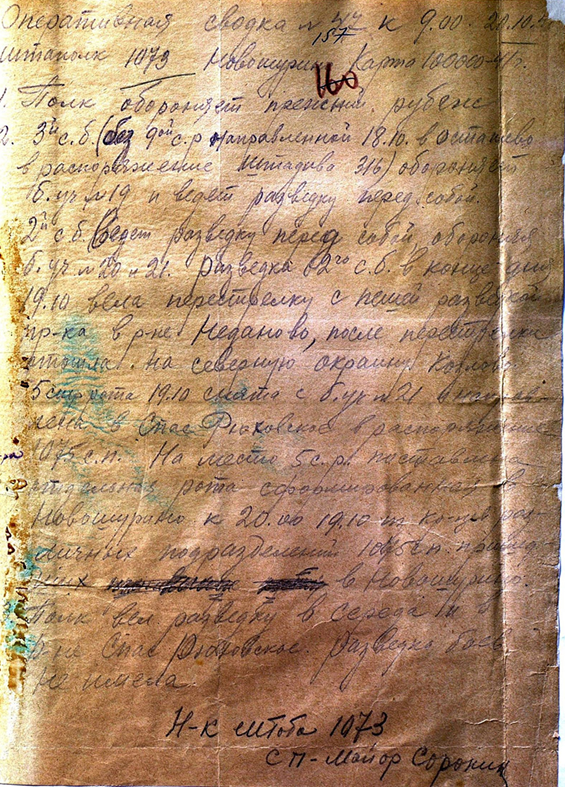 Оперативная сводка № 47 к 9.00. 20.10.
157
Штаполк 1073 Новошурино Карта 100000-41г.
160
1. Полк обороняет прежний рубеж
2. 3й с.б. (без 9ой с.р. направленной 18.10. в Осташево
в распоряжение Штадива 316) обороняет
б. уч. №19 и ведет разведку перед собой.
2й с.б. ведет разведку перед собой, обороняя
б. уч. №20 и 21. Разведка 2го с.б. в конце дня
19.10 вела перестрелку с пешей разведкой
пр-ка в р-не Неданово, после перестрелки
отошла на северную окраину Козлово
5 стр. рота 19.10 снята с б. уч. №21 и направ-
лена в Спас Рюховское в распоряжение
1075 с.п. На место 5 с.р. поставлена
отдельная рота сформированная в
Новошурино к 20.00 19.10 из
личных подразделений 1075 с.п.
в Новошурино.
Полк вел разведку в Середа и в
р-не Спас Рюховское. Разведка боев
не имела.
Н-к штаба 1073
СП - Майор Сорокин